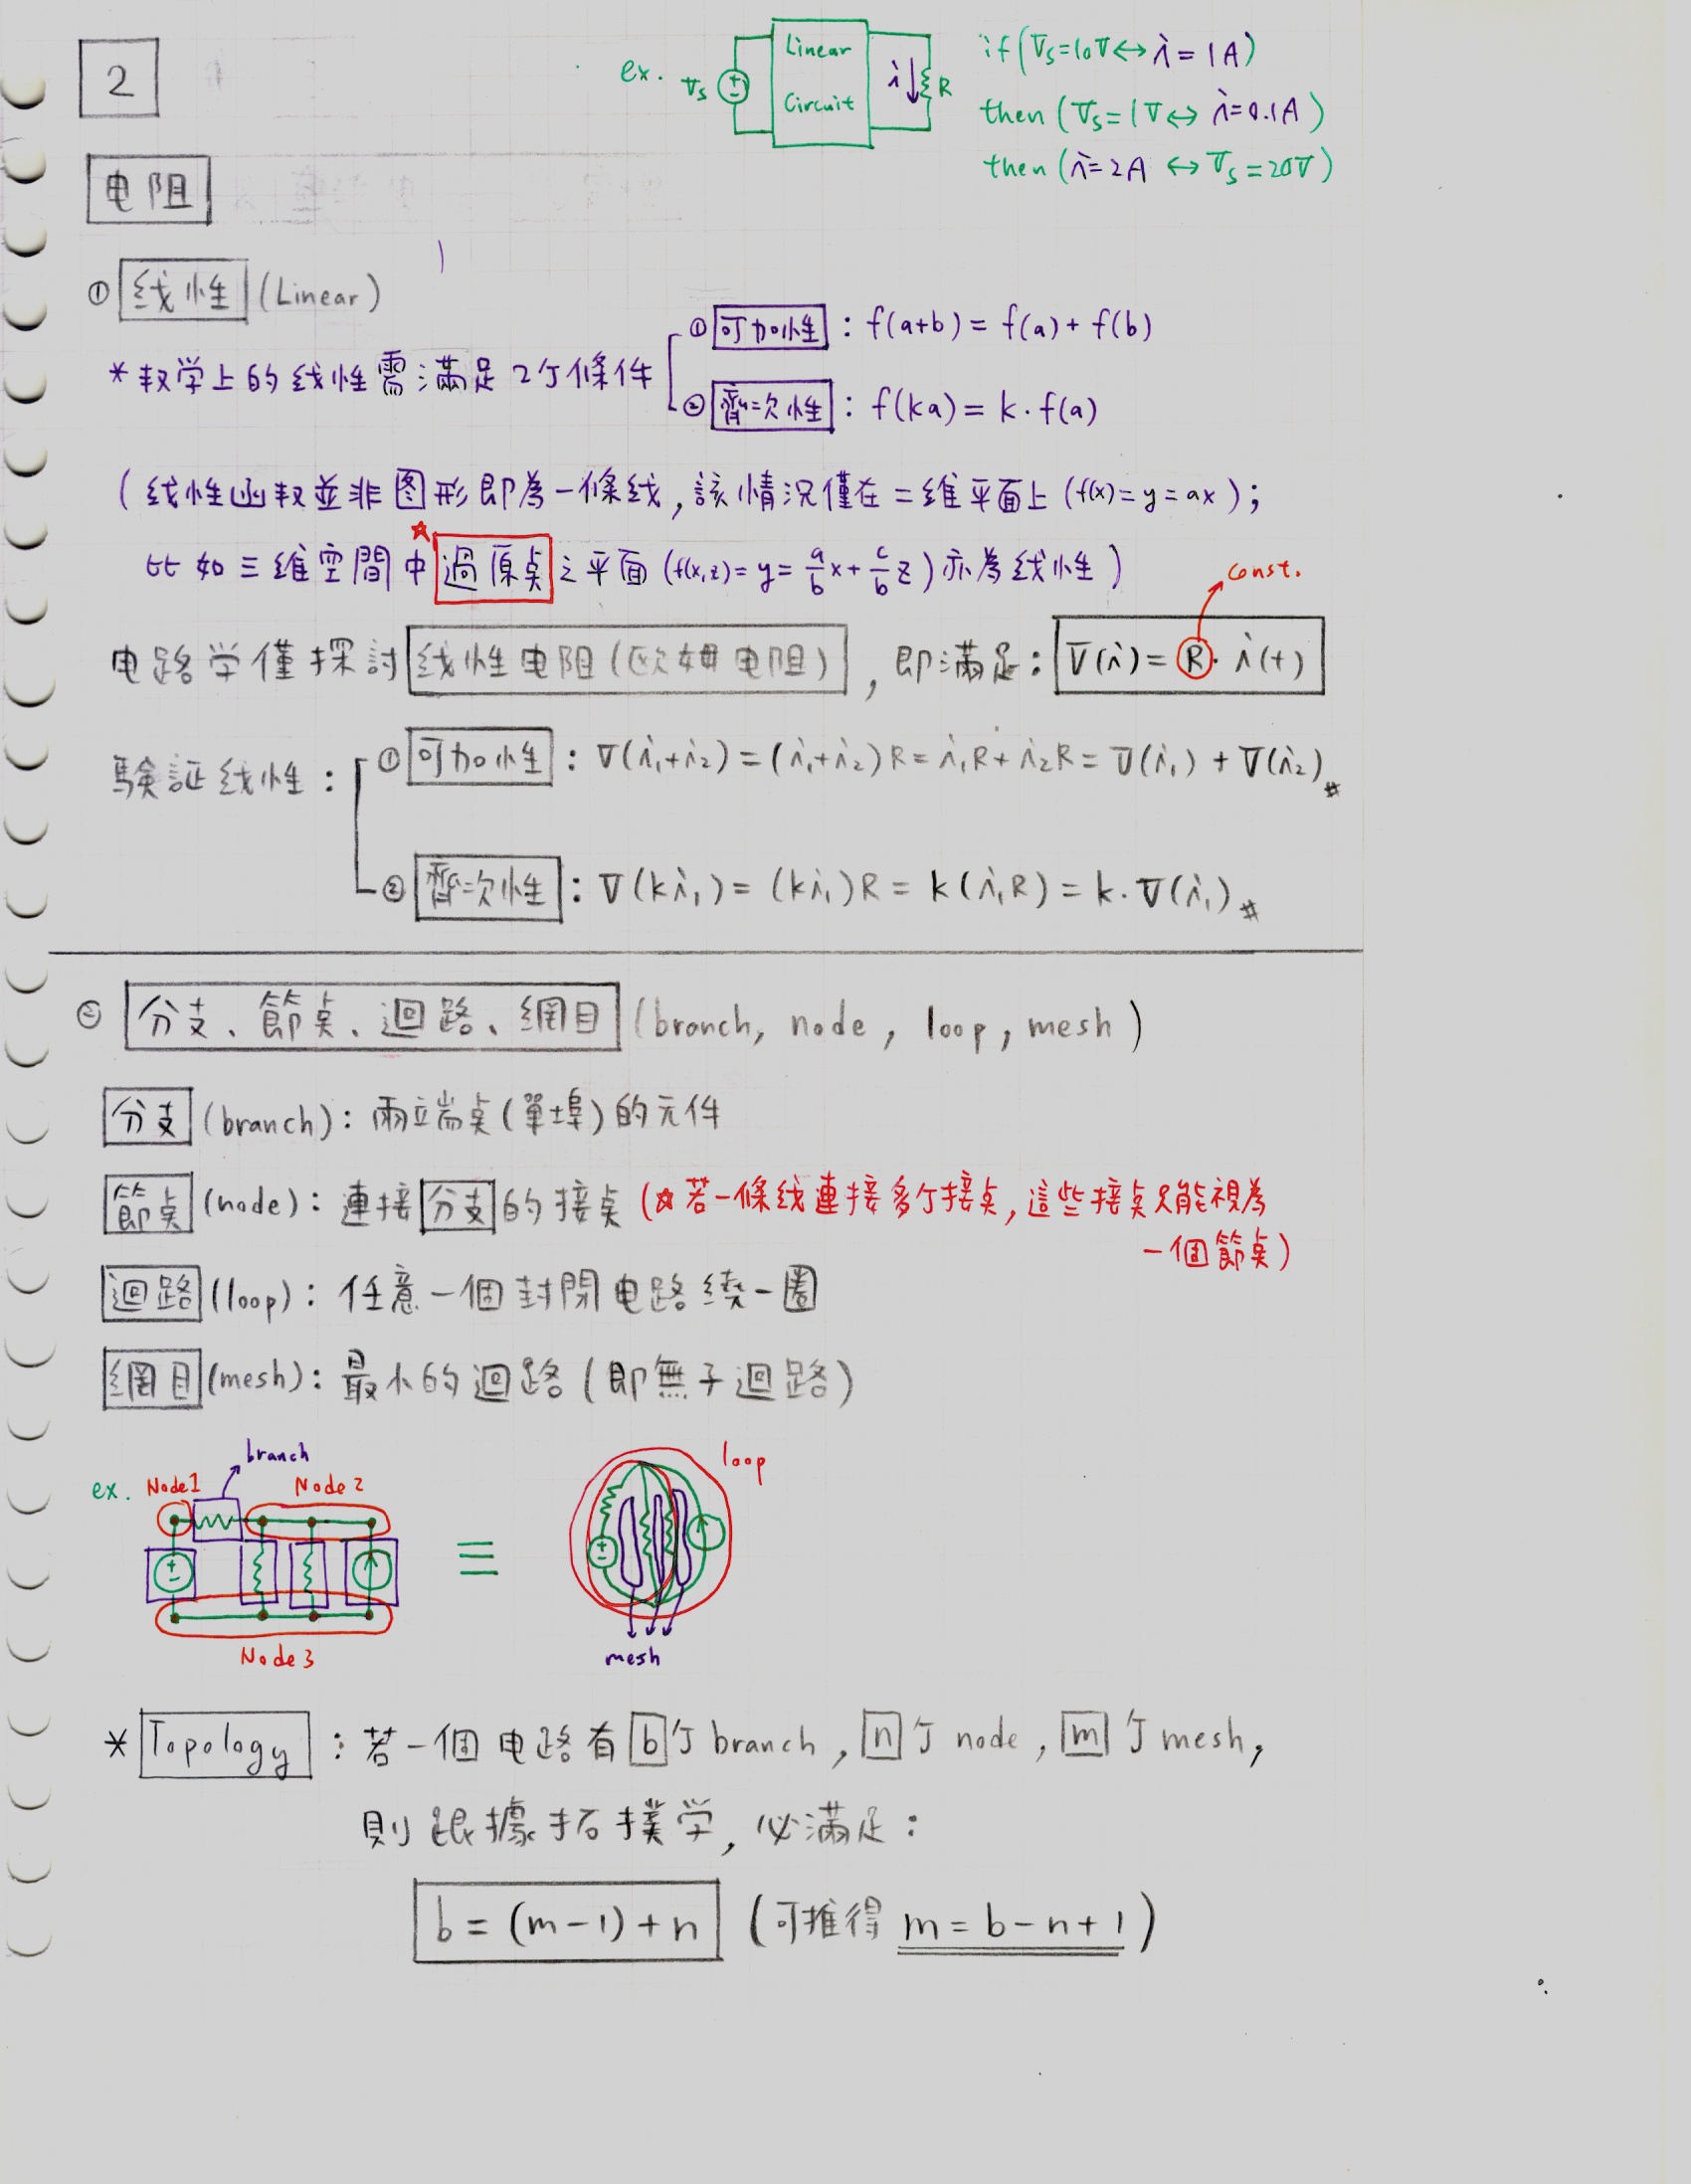 2
ex. Vs Linear Circuit i R
if (Vs=10V↔i=1A)
then (Vs=1V↔i=0.1A)
then (i=2A↔Vs=20V)
电阻
① 线性 (Linear)
*数学上的线性需滿足2个條件
①可加性：f(a+b)=f(a)+f(b)
②齊次性：f(ka)=k·f(a)
(线性函数並非图形即為一條线,該情況僅在二維平面上(f(x)=y=ax);
比如三維空間中☆過原点之平面(f(x,z)=y=a/b x+c/b z)亦為线性)
const.
电路学僅探討线性电阻(欧姆电阻),即滿足:V(i)=R·i(t)
驗証线性:
①可加性:V(i₁+i₂)=(i₁+i₂)R=i₁R+i₂R=V(i₁)+V(i₂)#
②齊次性:V(ki₁)=(ki₁)R=k(i₁R)=k·V(i₁)#
② 分支、節点、迴路、網目 (branch, node, loop, mesh)
分支(branch):兩端点(單埠)的元件
節点(node):連接分支的接点(☆若一條线連接多个接点,這些接点只能視為
一個節点)
迴路(loop):任意一個封閉电路繞一圈
網目(mesh):最小的迴路(即無子迴路)
branch
loop
ex. Node1 Node2
≡
Node3
mesh
*Topology:若一個电路有b个branch,n个node,m个mesh,
則跟據拓撲学,必滿足:
b=(m-1)+n (可推得m=b-n+1)